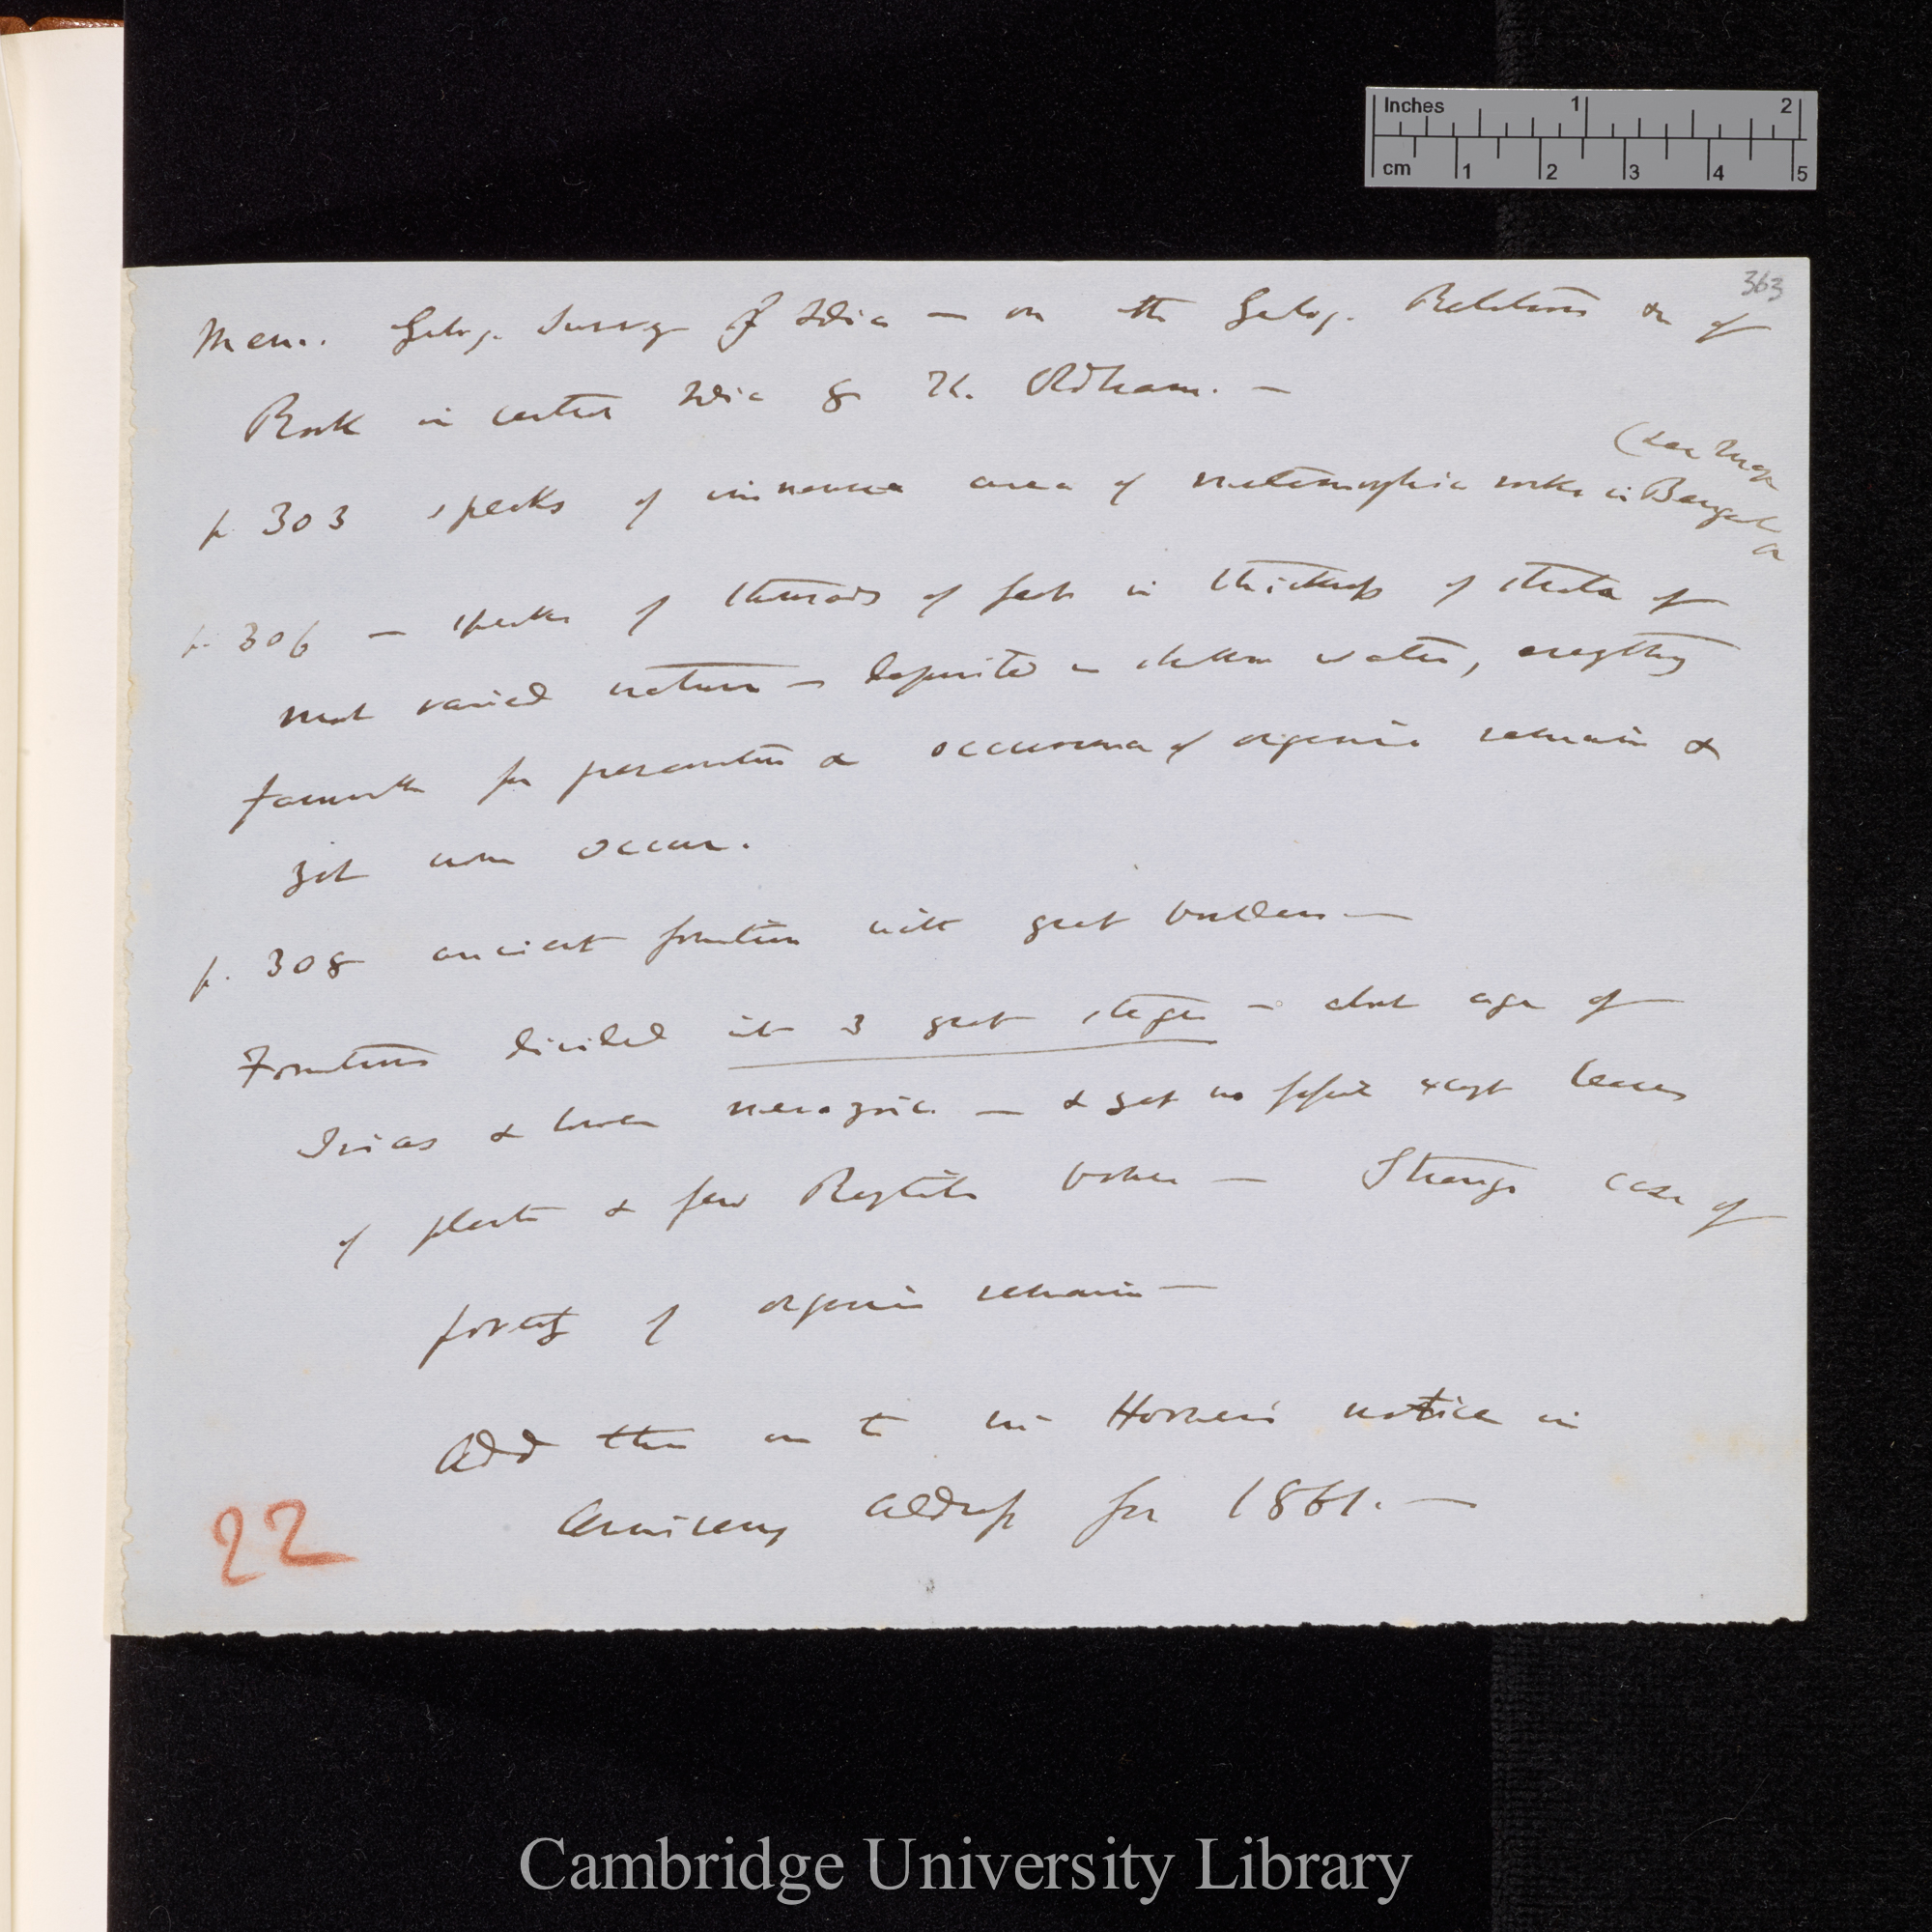 Inches 1 2
cm 1 2 3 4 5
363
Mem. Geolog. Survey of India — on the Geolog. Relations &c of
Rock in central India by T. Oldham. —
p. 303 speaks of immense area of metamorphic rocks in Bengal
(see
p. 306 — speaks of thousands of feet in thickness of strata of
most varied nature — deposited in shallow water, everything
favourable for preservation & occurrence of organic remains &
yet none occur.
p. 308 ancient formation with great boulders —
Formations divided into 3 great stages — about age of
Trias & lower mesozoic — & yet no fossil except leaves
of plants & few Reptile bones — Strange case of
poverty of organic remains —
Add this on to in Horner's notice in
Anniversary address for 1861. —
22
Cambridge University Library